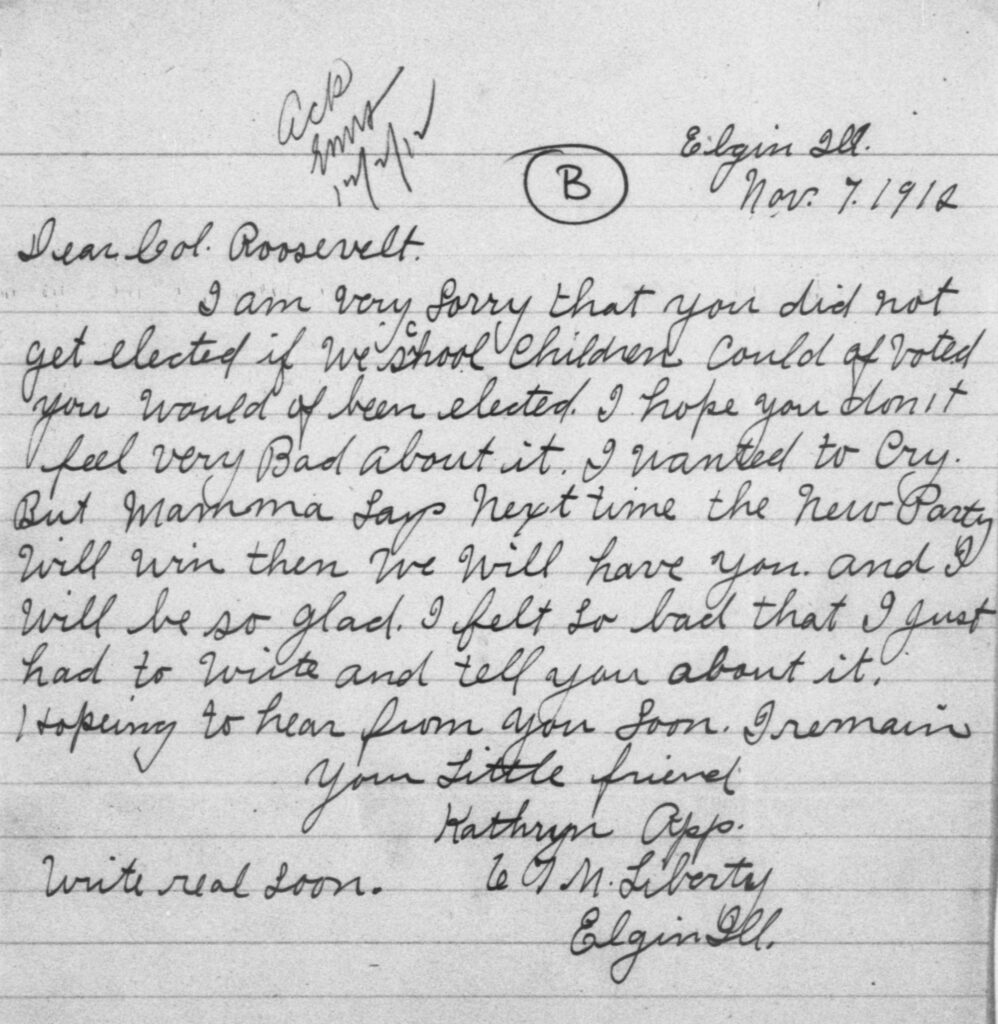 Ack
12/2/12
B
Elgin Ill.
Nov. 7. 1912
Dear Col. Roosevelt.
I am very sorry that you did not
get elected if we school Children Could of Voted
you Would of been elected. I hope you don't
feel very Bad about it. I wanted to Cry.
But Mamma Says Next time the New Party
Will win then We Will have you. and I
Will be so glad. I felt so bad that I just
had to Write and tell you about it.
Hopeing to hear from you Soon. I remain
Your Little friend
Kathryn App.
Write real soon.
N. Liberty
Elgin Ill.